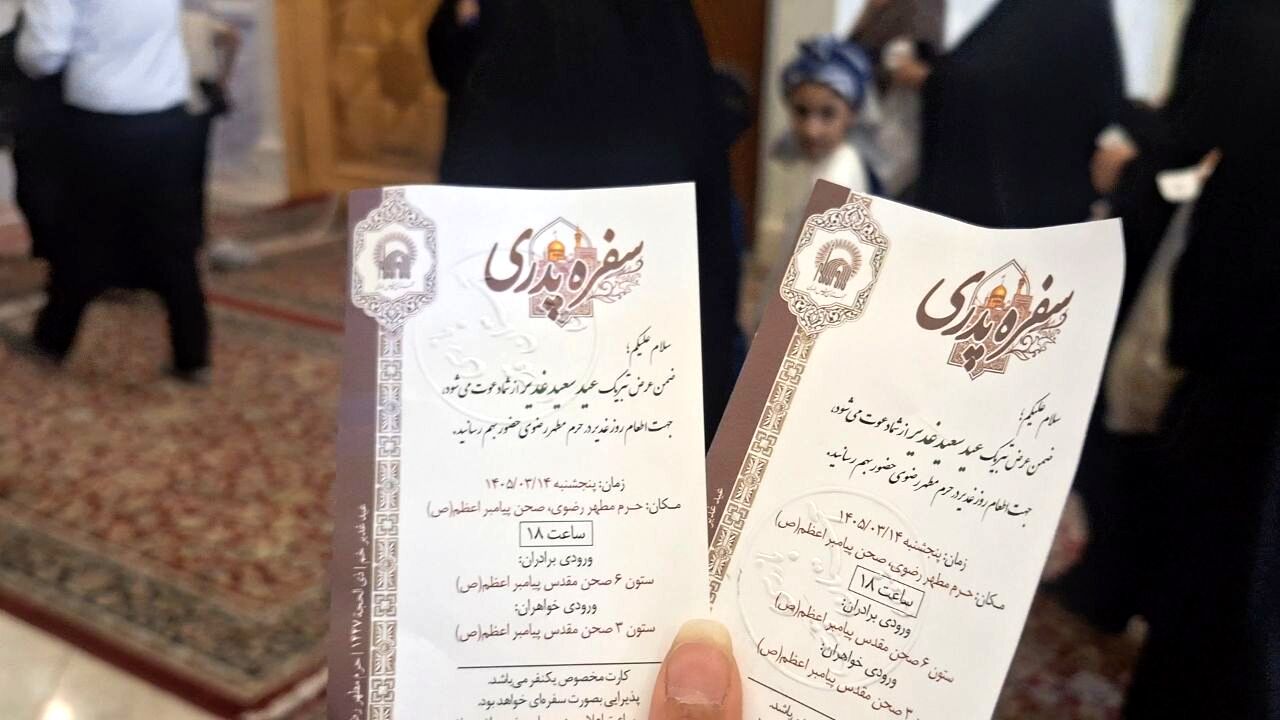 سفره پدری
سلام علیکم؛
ضمن عرض تبریک عید سعید غدیر از شما دعوت می‌شود،
جهت اطعام روز غدیر در حرم مطهر رضوی حضور بهم رسانید.
زمان: پنجشنبه ۱۴۰۵/۰۳/۱۴
مکان: حرم مطهر رضوی، صحن پیامبر اعظم(ص)
ساعت ۱۸
ورودی برادران:
ستون ۶ صحن مقدس پیامبر اعظم(ص)
ورودی خواهران:
ستون ۳ صحن مقدس پیامبر اعظم(ص)
کارت مخصوص یکنفر می‌باشد.
پذیرایی بصورت سفره‌ای خواهد بود.
عید غدیر خم | ذی الحجه ۱۴۴۷ | حرم مطهر
سفره پدری
سلام علیکم؛
ضمن عرض تبریک عید سعید غدیر از شما دعوت می‌شود،
جهت اطعام روز غدیر در حرم مطهر رضوی حضور بهم رسانید.
زمان: پنجشنبه ۱۴۰۵/۰۳/۱۴
مکان: حرم مطهر رضوی، صحن پیامبر اعظم(ص)
ساعت ۱۸
ورودی برادران:
ستون ۶ صحن مقدس پیامبر اعظم(ص)
ورودی خواهران:
۳ صحن مقدس پیامبر اعظم(ص)
عید غدیر